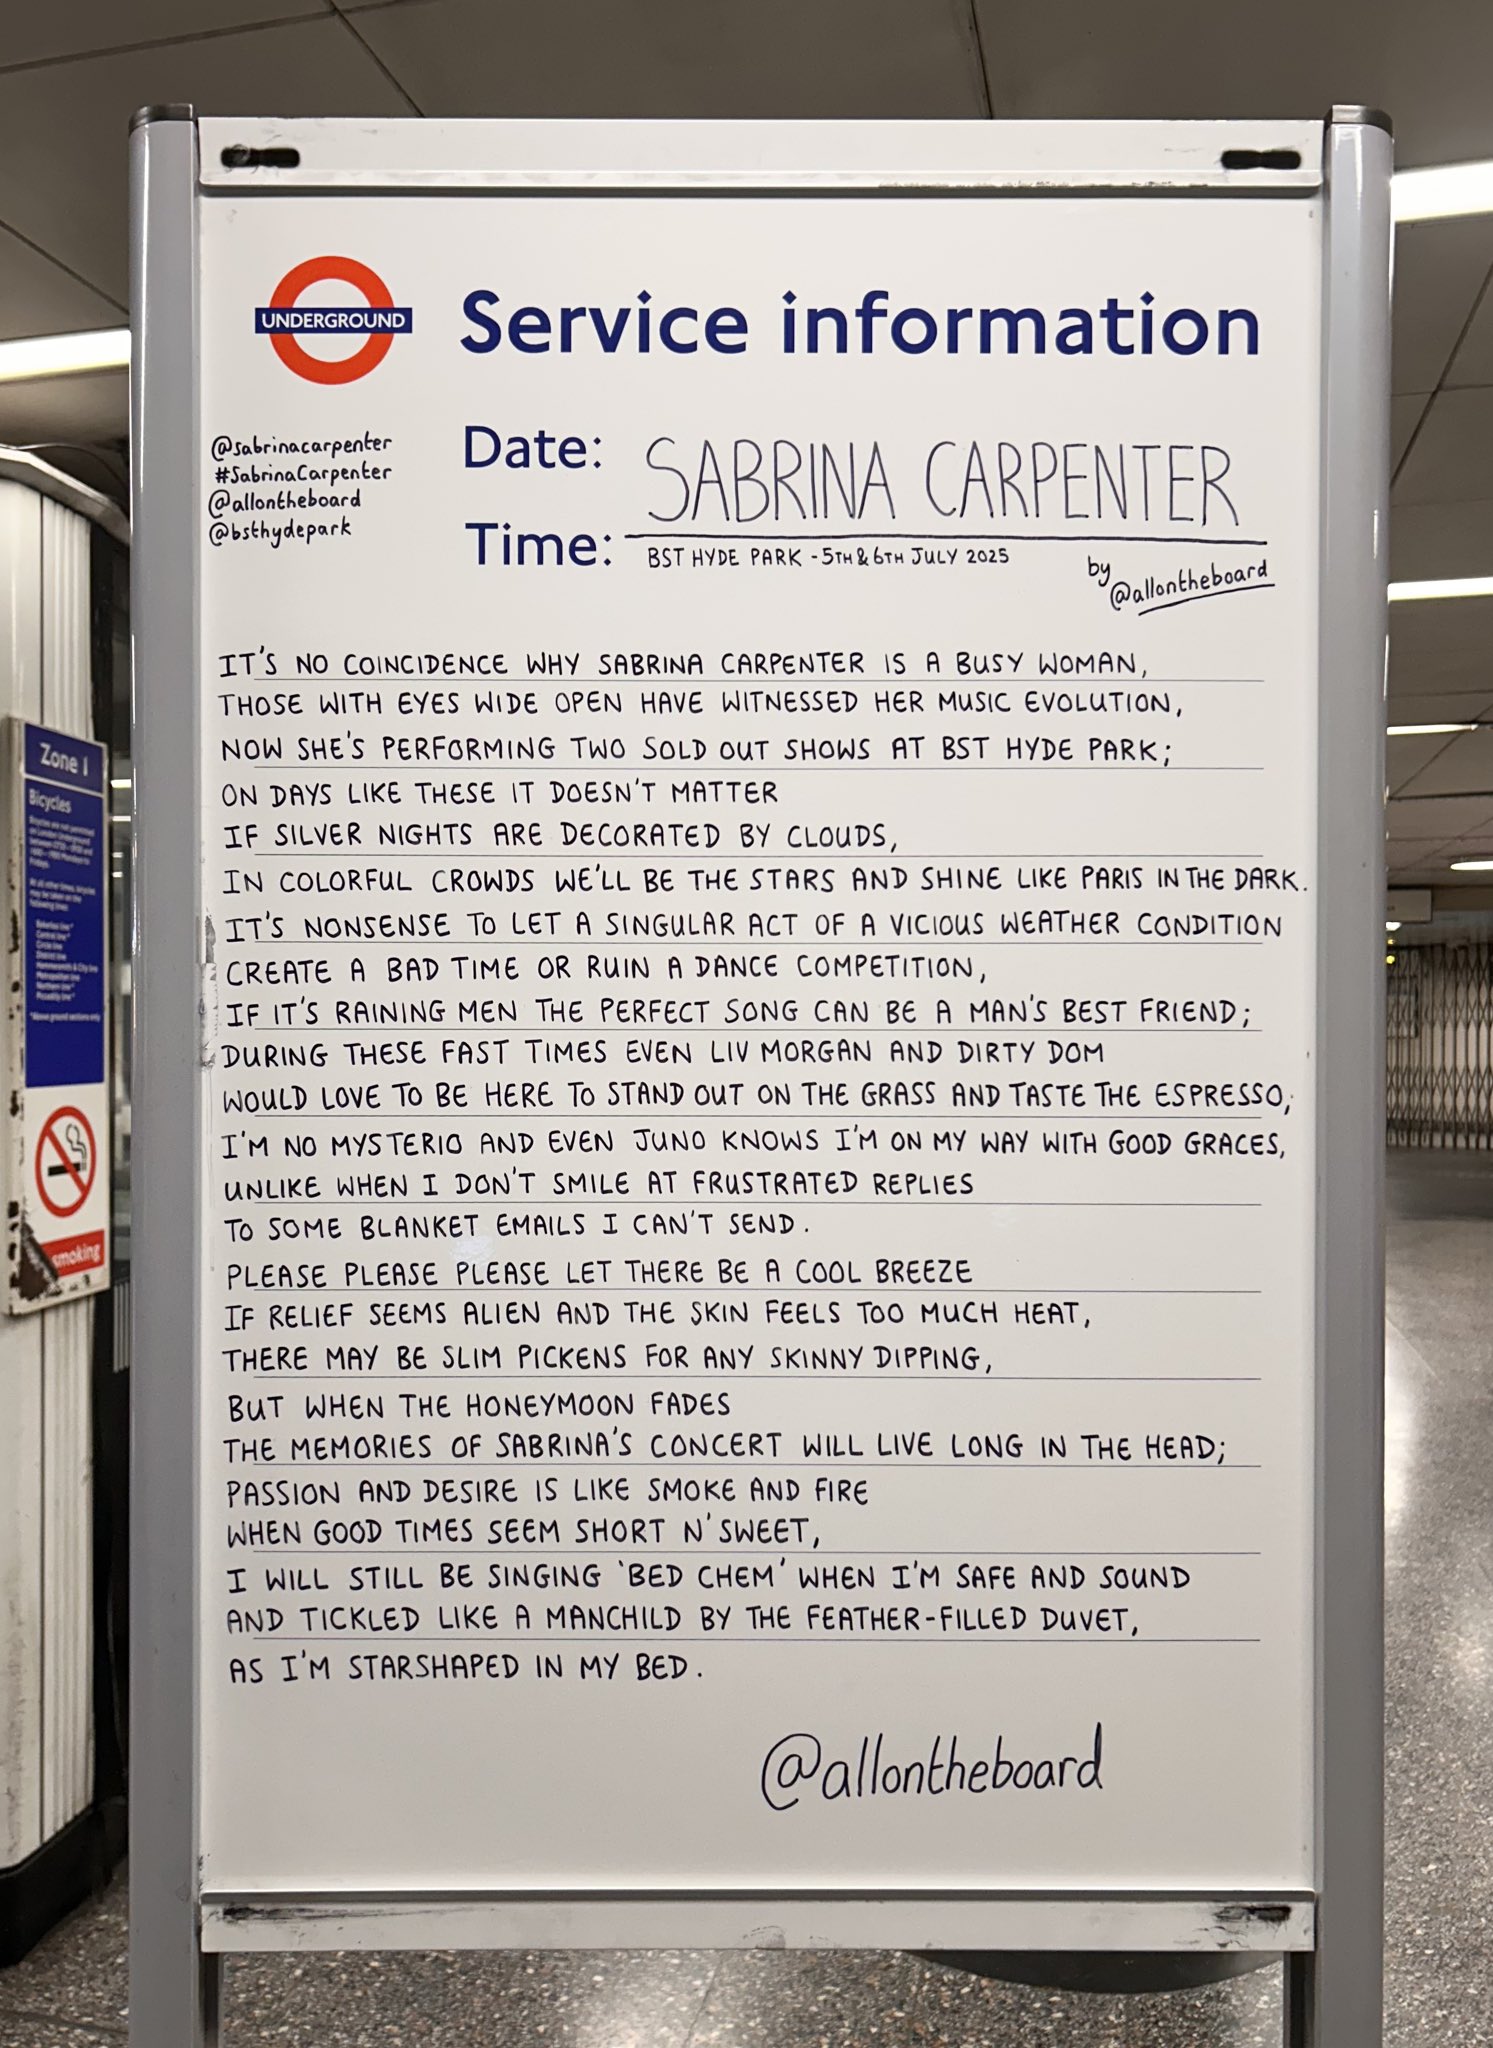 UNDERGROUND
Service information
@sabrinacarpenter
#SabrinaCarpenter
@allontheboard
@bsthydepark
Date: SABRINA CARPENTER
Time: BST HYDE PARK - 5TH & 6TH JULY 2025
by
@allontheboard
IT'S NO COINCIDENCE WHY SABRINA CARPENTER IS A BUSY WOMAN,
THOSE WITH EYES WIDE OPEN HAVE WITNESSED HER MUSIC EVOLUTION,
NOW SHE'S PERFORMING TWO SOLD OUT SHOWS AT BST HYDE PARK;
ON DAYS LIKE THESE IT DOESN'T MATTER
IF SILVER NIGHTS ARE DECORATED BY CLOUDS,
IN COLORFUL CROWDS WE'LL BE THE STARS AND SHINE LIKE PARIS IN THE DARK.
IT'S NONSENSE TO LET A SINGULAR ACT OF A VICIOUS WEATHER CONDITION
CREATE A BAD TIME OR RUIN A DANCE COMPETITION,
IF IT'S RAINING MEN THE PERFECT SONG CAN BE A MAN'S BEST FRIEND;
DURING THESE FAST TIMES EVEN LIV MORGAN AND DIRTY DOM
WOULD LOVE TO BE HERE TO STAND OUT ON THE GRASS AND TASTE THE ESPRESSO;
I'M NO MYSTERIO AND EVEN JUNO KNOWS I'M ON MY WAY WITH GOOD GRACES,
UNLIKE WHEN I DON'T SMILE AT FRUSTRATED REPLIES
TO SOME BLANKET EMAILS I CAN'T SEND.
PLEASE PLEASE PLEASE LET THERE BE A COOL BREEZE
IF RELIEF SEEMS ALIEN AND THE SKIN FEELS TOO MUCH HEAT,
THERE MAY BE SLIM PICKENS FOR ANY SKINNY DIPPING,
BUT WHEN THE HONEYMOON FADES
THE MEMORIES OF SABRINA'S CONCERT WILL LIVE LONG IN THE HEAD;
PASSION AND DESIRE IS LIKE SMOKE AND FIRE
WHEN GOOD TIMES SEEM SHORT N' SWEET,
I WILL STILL BE SINGING 'BED CHEM' WHEN I'M SAFE AND SOUND
AND TICKLED LIKE A MANCHILD BY THE FEATHER-FILLED DUVET,
AS I'M STARSHAPED IN MY BED.
@allontheboard
Zone 1
Bicycles
smoking